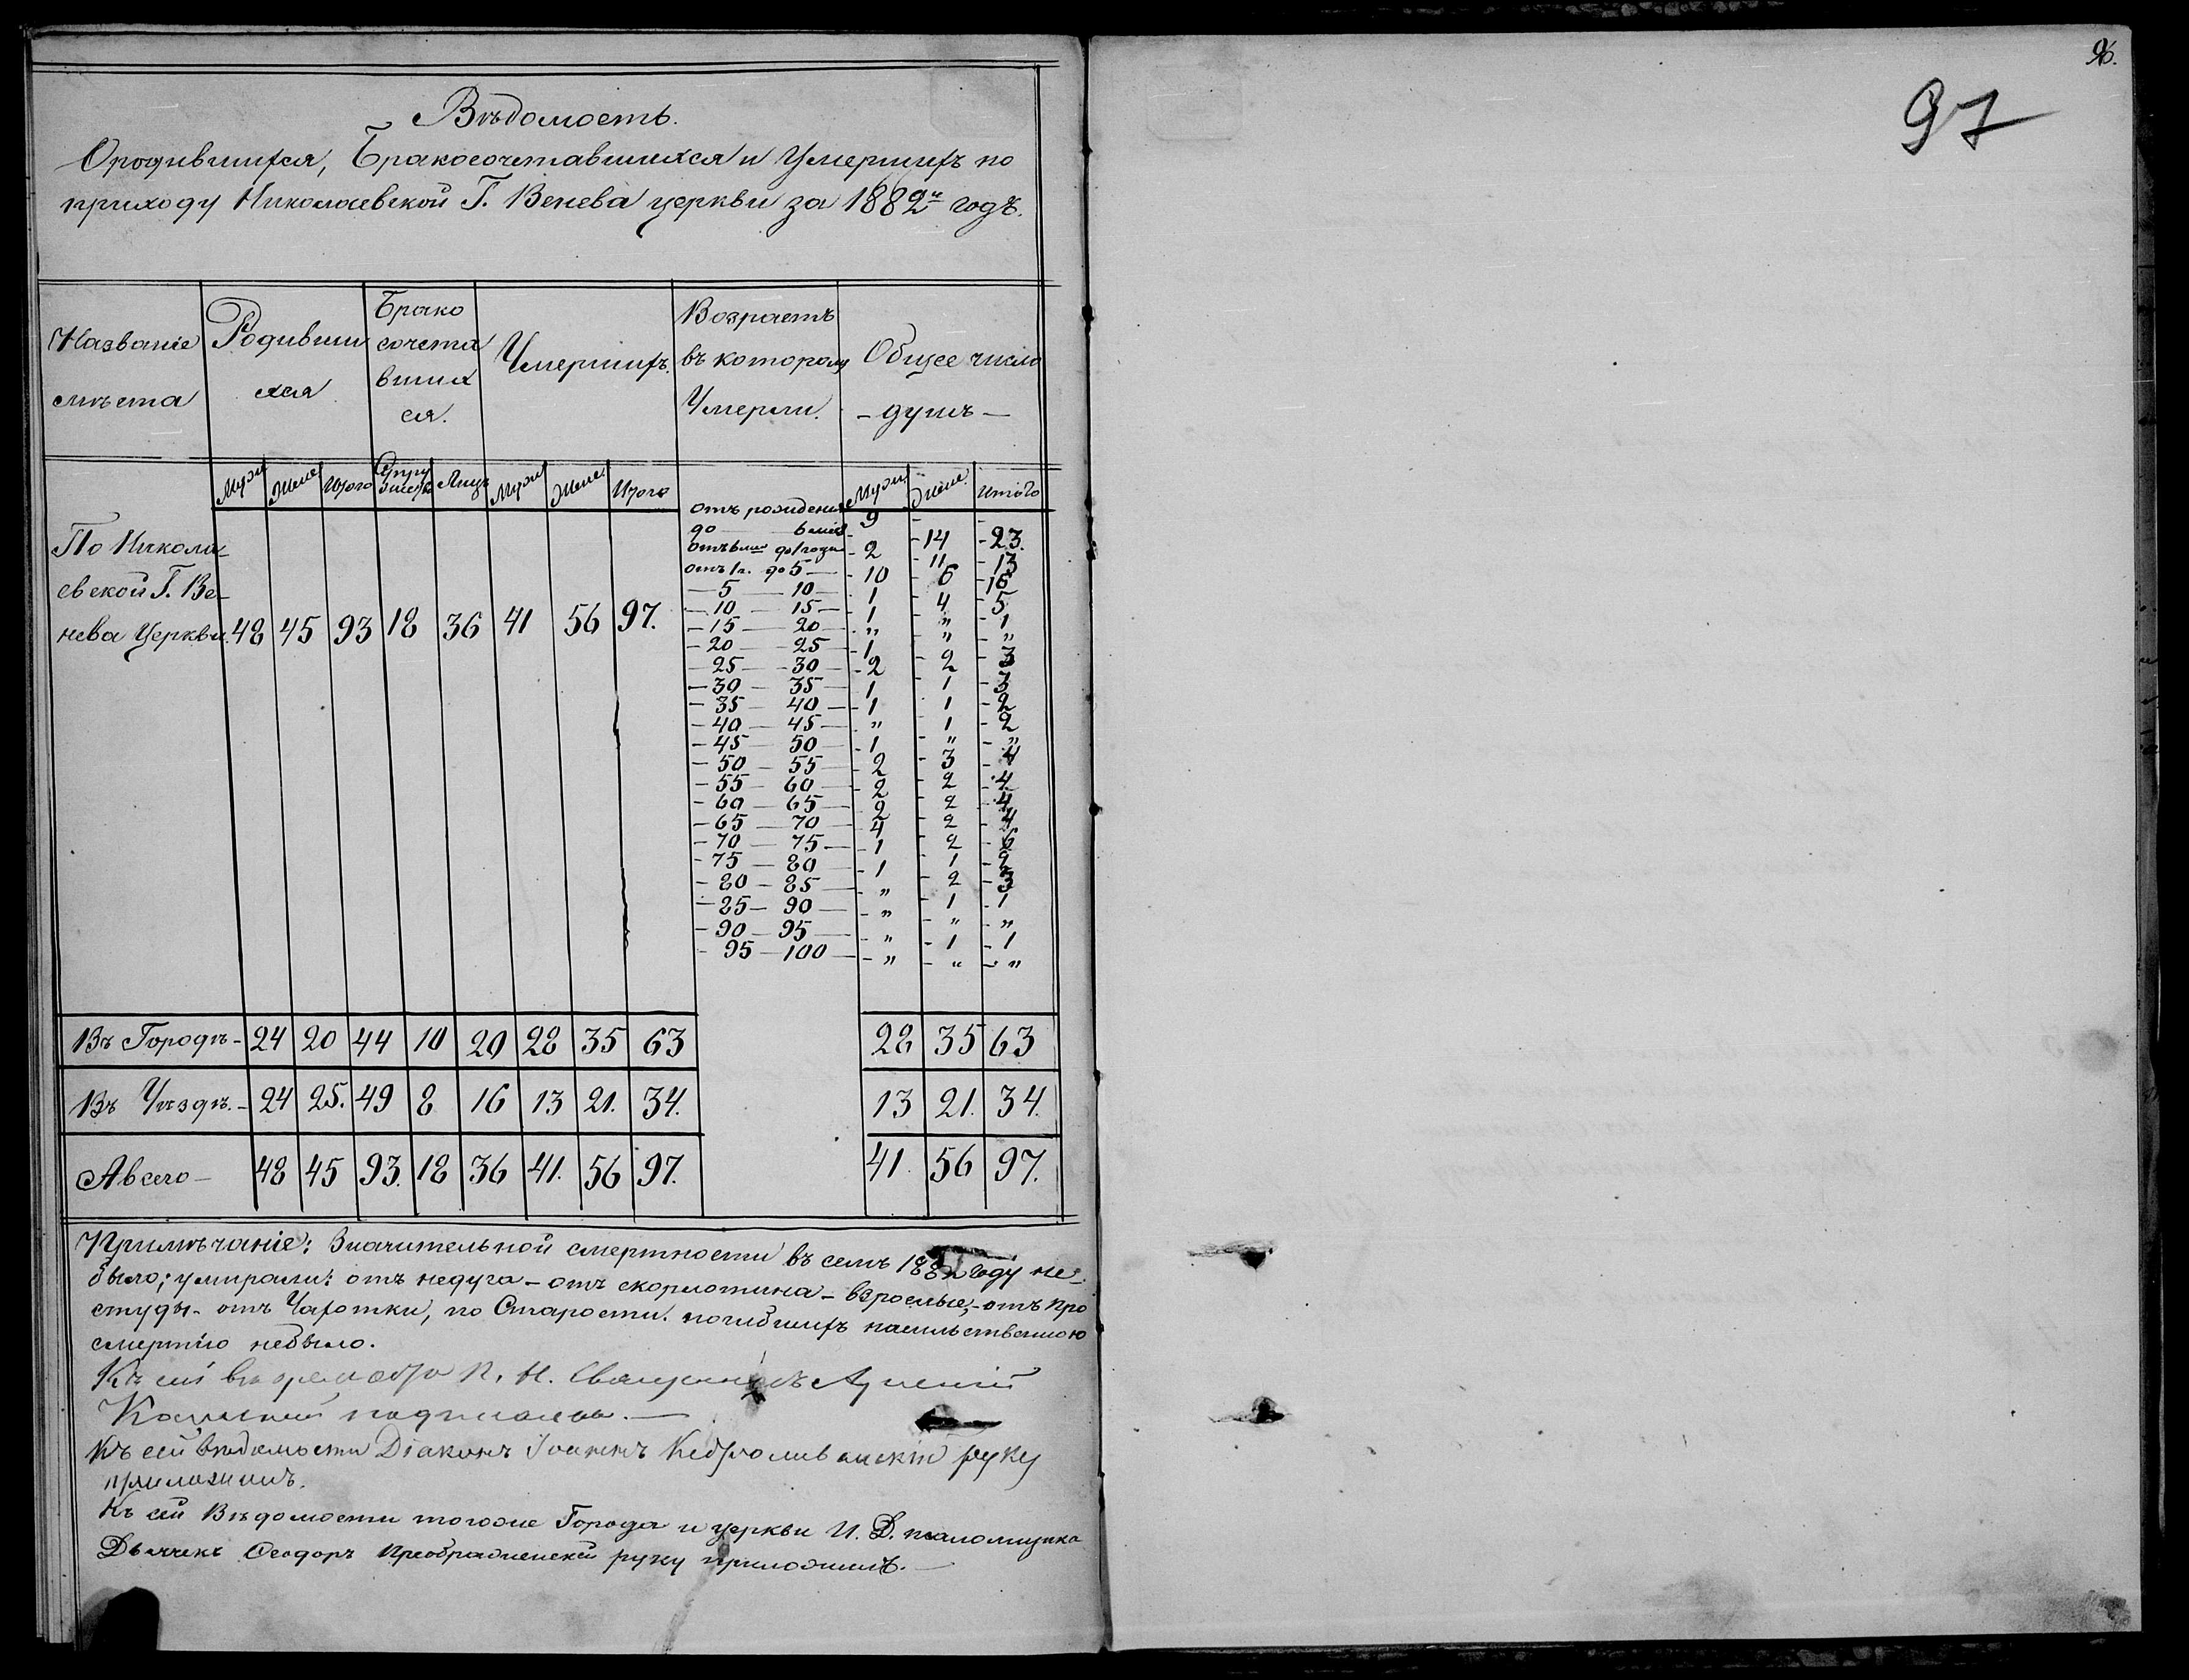 Вѣдомость.
О родившихся, Бракосочетавшихся и Умершихъ по
приходу Николаевской Г. Венева церкви за 1882й годъ.
Названіе мѣста
Родивши хся
Брако сочета вших ся.
Умершихъ.
Возрастъ въ котором Умерли.
Общее число – душъ –
Муж Жене Итого Супру жеств Лицъ Муж Жене Итого Муж Жене. Итого
По Никола-
евской Г. Ве-
нева Церкви. 48 45 93 18 36 41 56 97.
отъ рожденія
до 6 мес 9 – 14 – 23.
отъ 6 м до 1 года – 2 – 11 – 13
отъ 1 г. до 5 – 10 – 6 – 16
– 5 – 10 – 1 – 4 – 5
– 10 – 15 – 1 – „ – 1
– 15 – 20 – „ – „ – „
– 20 – 25 – 1 – 2 – 3
– 25 – 30 – 2 – 1 – 3
– 30 – 35 – 1 1 – 2
– 35 – 40 – 1 1 – 2
– 40 – 45 – „ – „ – „
– 45 – 50 – 1 – 3 – 4
– 50 – 55 – 2 – 2 – 4
– 55 – 60 – 2 – 2 – 4
– 60 – 65 – 2 – 2 – 4
– 65 – 70 – 4 – 2 – 6
– 70 – 75 – 1 – 1 – 2
– 75 – 80 – 1 – 2 – 3
– 80 – 85 – „ – 1 – 1
– 85 – 90 – „ – „ – „
– 90 – 95 – „ – 1 – 1
– 95 – 100 – „ – „ – „
Въ Городѣ – 24 20 44 10 20 28 35 63 28 35 63
Въ Уѣздѣ. – 24 25. 49 8 16 13 21. 34. 13 21. 34.
А всего – 48 45 93. 18 36 41. 56 97. 41. 56 97.
Примѣчаніе: Значительной смертности въ семъ 1882 году не-
было; умирали: отъ недуга – отъ скорлотина – взрослые, – отъ про
студы – отъ Чахотки, по Старости. погибшихъ насильственною
смертію небыло.
Къ сей
подписался. –
Къ сей вѣдомости Діаконъ Іоаннъ руку
приложилъ.
Къ сей Вѣдомости тогоже Города и церкви И. Д. псаломщика
Дьячекъ Ѳеодоръ Преображенскій руку приложилъ. –
96.
97